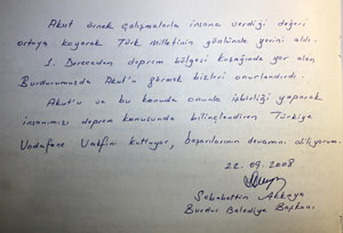 Akut örnek çalışmalarla insana verdiği değeri
ortaya koyarak Türk Milletinin gönlünde yerini aldı.
1. Dereceden deprem bölgesi kuşağında yer alan
Burdurumuzda Akut'u görmek bizleri onurlandırdı.
Akut'u ve bu konuda onunla işbirliği yaparak
insanımızı deprem konusunda bilinçlendiren Türkiye
Vodafone Vakfını kutluyor, başarılarının devamını diliyorum.
22.09.2008
Sebahattin Akkaya
Burdur Belediye Başkanı